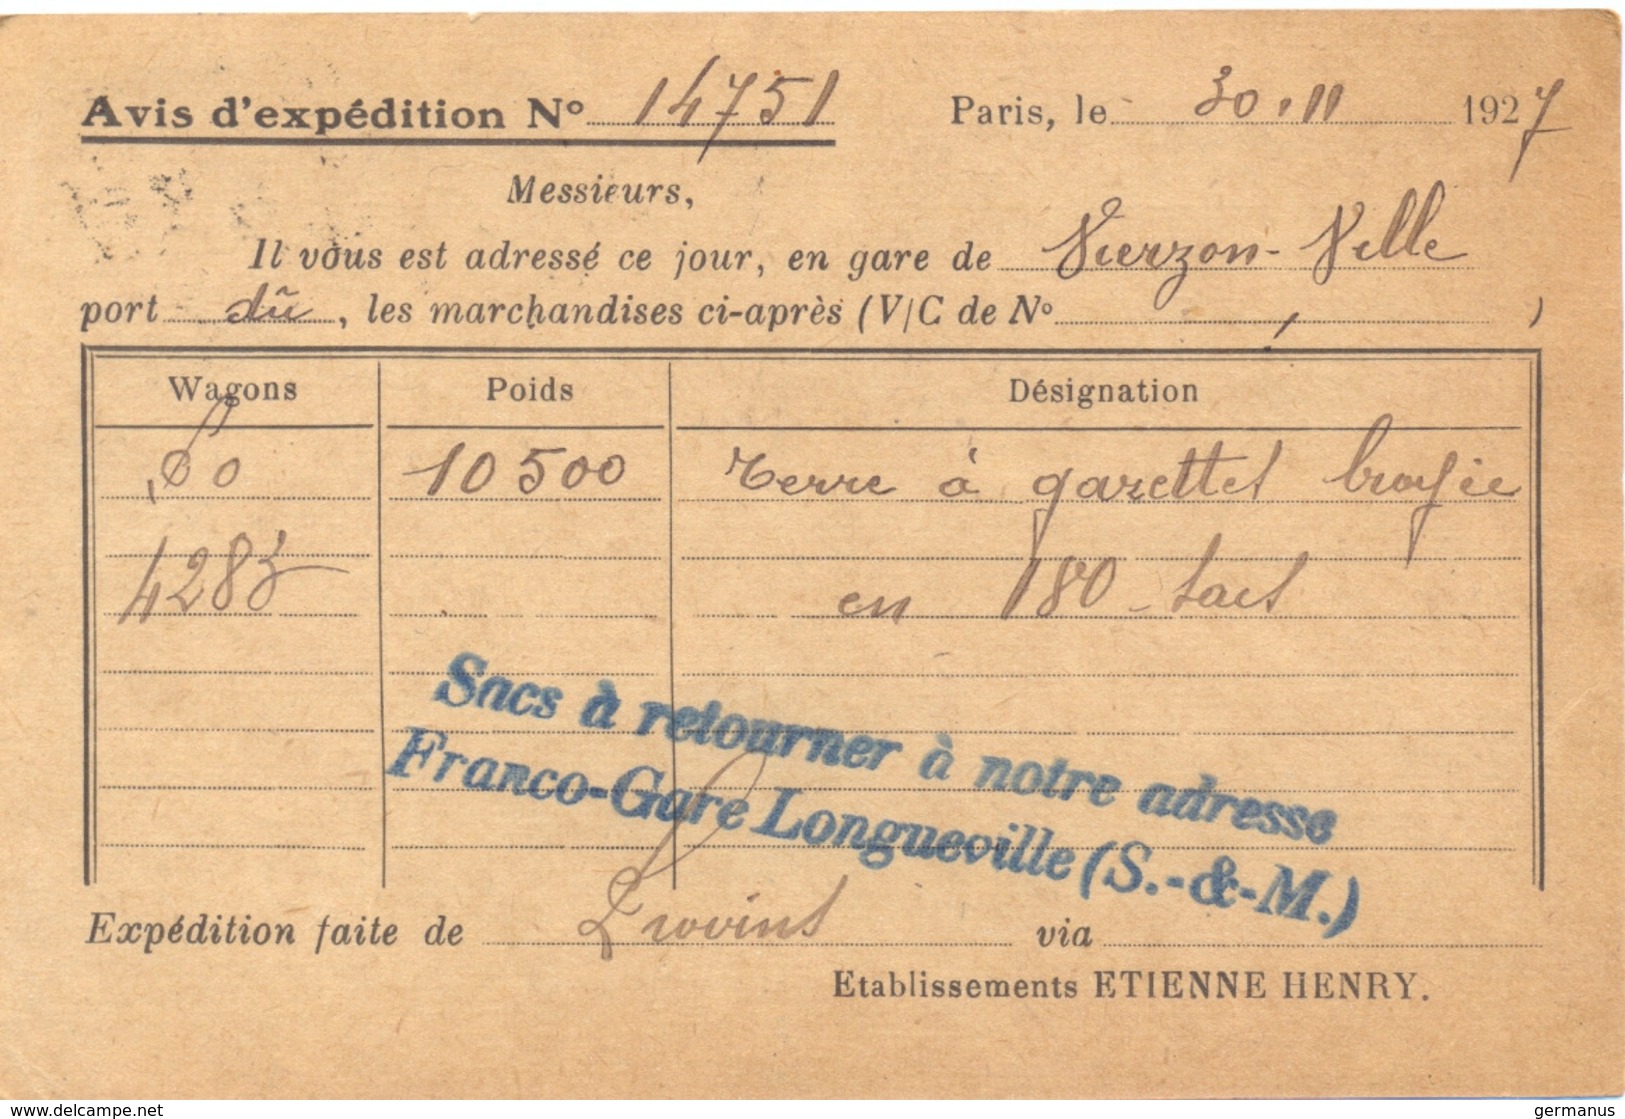 Avis d'expédition N° 14751 Paris, le 30.11 1927
Messieurs,
Il vous est adressé ce jour, en gare de Vierzon-Ville
port dû, les marchandises ci-après (V/C de N° )
Wagons Poids Désignation
10 500 terre à gazettes broyée
4283 en 180 sacs
Sacs à retourner à notre adresse
Franco-Gare Longueville (S.-&-M.)
Expédition faite de Provins via
Etablissements ETIENNE HENRY.
www.delcampe.net
germanus